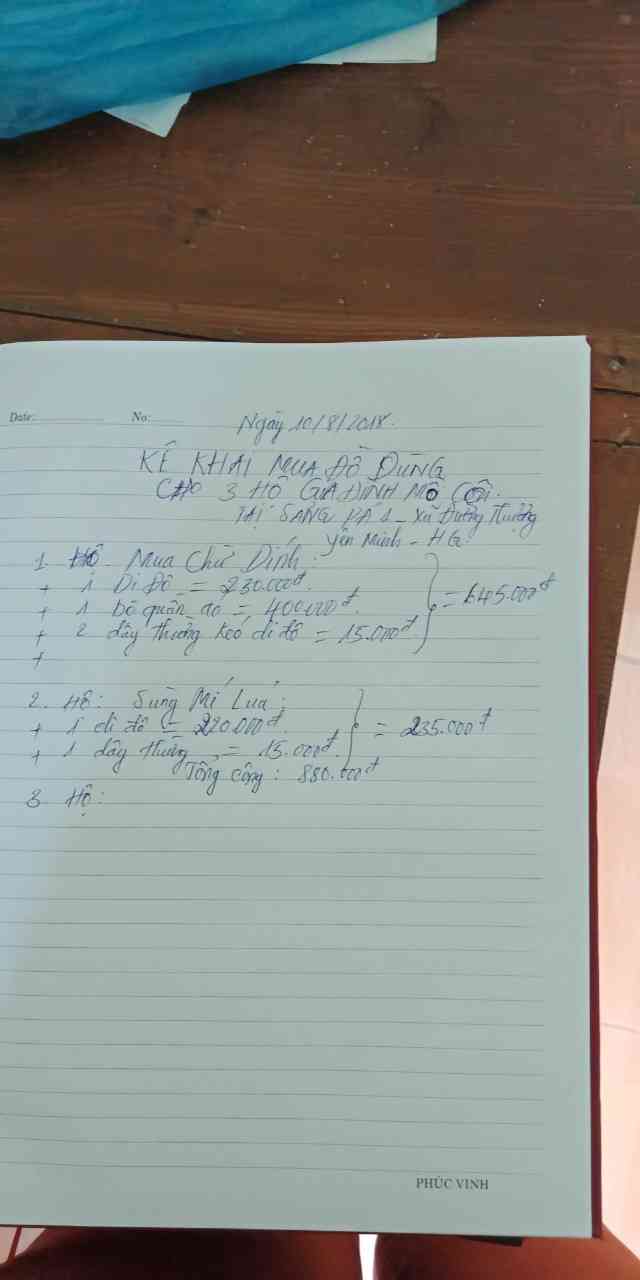 Date: No: Ngày 10/8/2018.
KÊ KHAI MUA ĐỒ DÙNG
CHO 3 HỘ GIA ĐÌNH MỒ CÔI.
TẠI SẢNG PẢ 1 - Xã Đường Thượng
Yên Minh - HG.
1. Hộ Mua Chứ Dính:
+ 1 Di Đô = 230.000đ.
+ 1 bộ quần áo = 400.000đ. = 645.000đ
+ 2 dây thường kéo di đô = 15.000đ.
+
2. Hộ: Sùng Mí Luá:
+ 1 di đô = 220.000đ. = 235.000đ
+ 1 dây thường = 15.000đ.
Tổng cộng: 880.000đ
3. Hộ:
PHÚC VINH